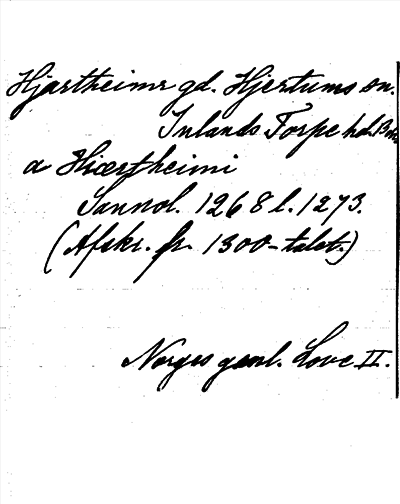 Hjartheimr gd. Hjertums sn.
Inlands Torpe hd. Bn.
a Hiærtheimi
Sannol. 1268 l. 1273.
(Afskr. fr. 1300-talet.)
Norges gaml. Love II.